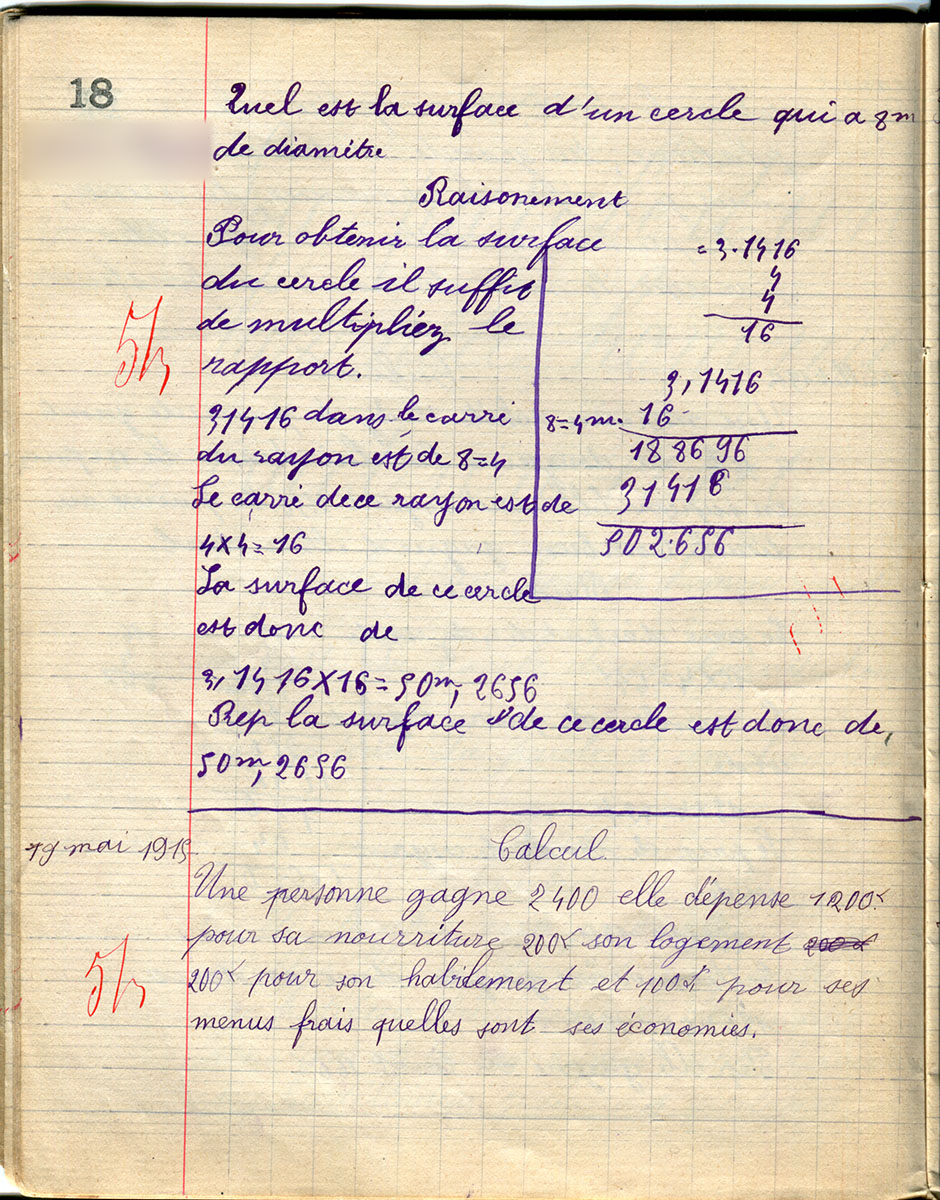 18
Quel est la surface d'un cercle qui a 8m
de diamétre
Raisonement
Pour obtenir la surface
du cercle il suffit
de multipliéz le
rapport.
31416 dans le carré
du rayon est de 8=4
Le carré de ce rayon est de
4×4=16
La surface de ce cercle
est donc de
3,1416×16=50m,2656
Rep la surface de ce cercle est donc de,
50m,2656
=3.1416
4
4
16
3,1416
8=4m. 16
188696
31416
502.656
19 mai 1915
Calcul
Une personne gagne 2400 elle dépense 1200f
pour sa nourriture 200f son logement
200f pour son habilement et 100f pour ses
menus frais quelles sont ses économies.